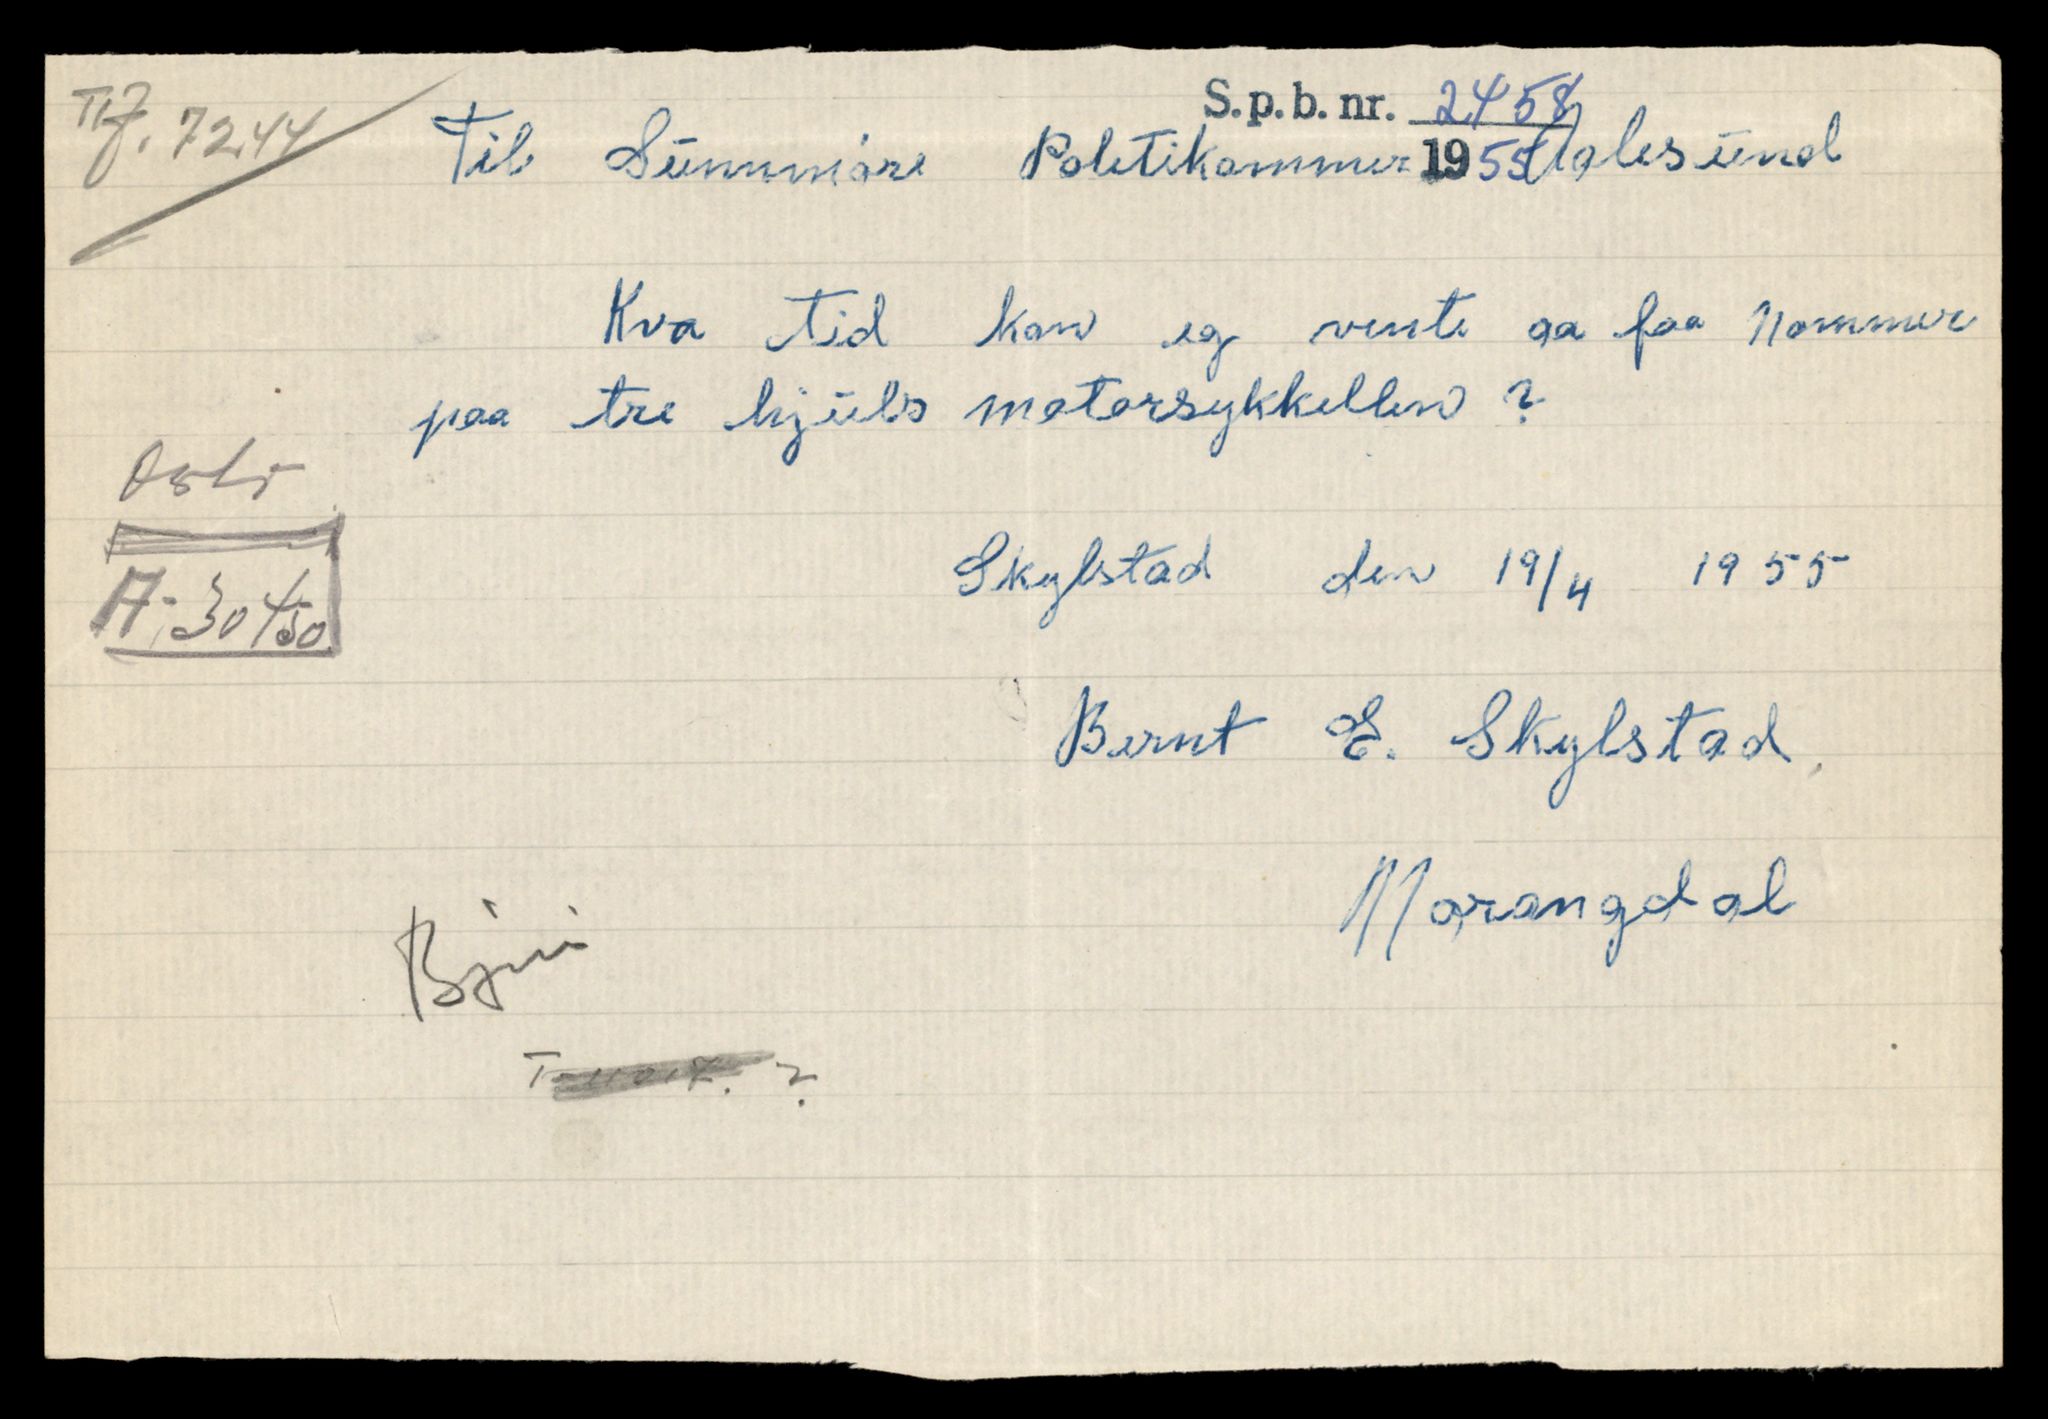 Tlf. 7244
S.p.b. nr. 2458
Til Sünnmøre Politikammer 1955 Aalesünd
Kva tid kan eg vente aa faa Nommer
paa tre hjüls motorsykkellen ?
Oslo
A-30450
Skylstad den 19/4 1955
Bernt E. Skylstad.
Norangdal
T- ?